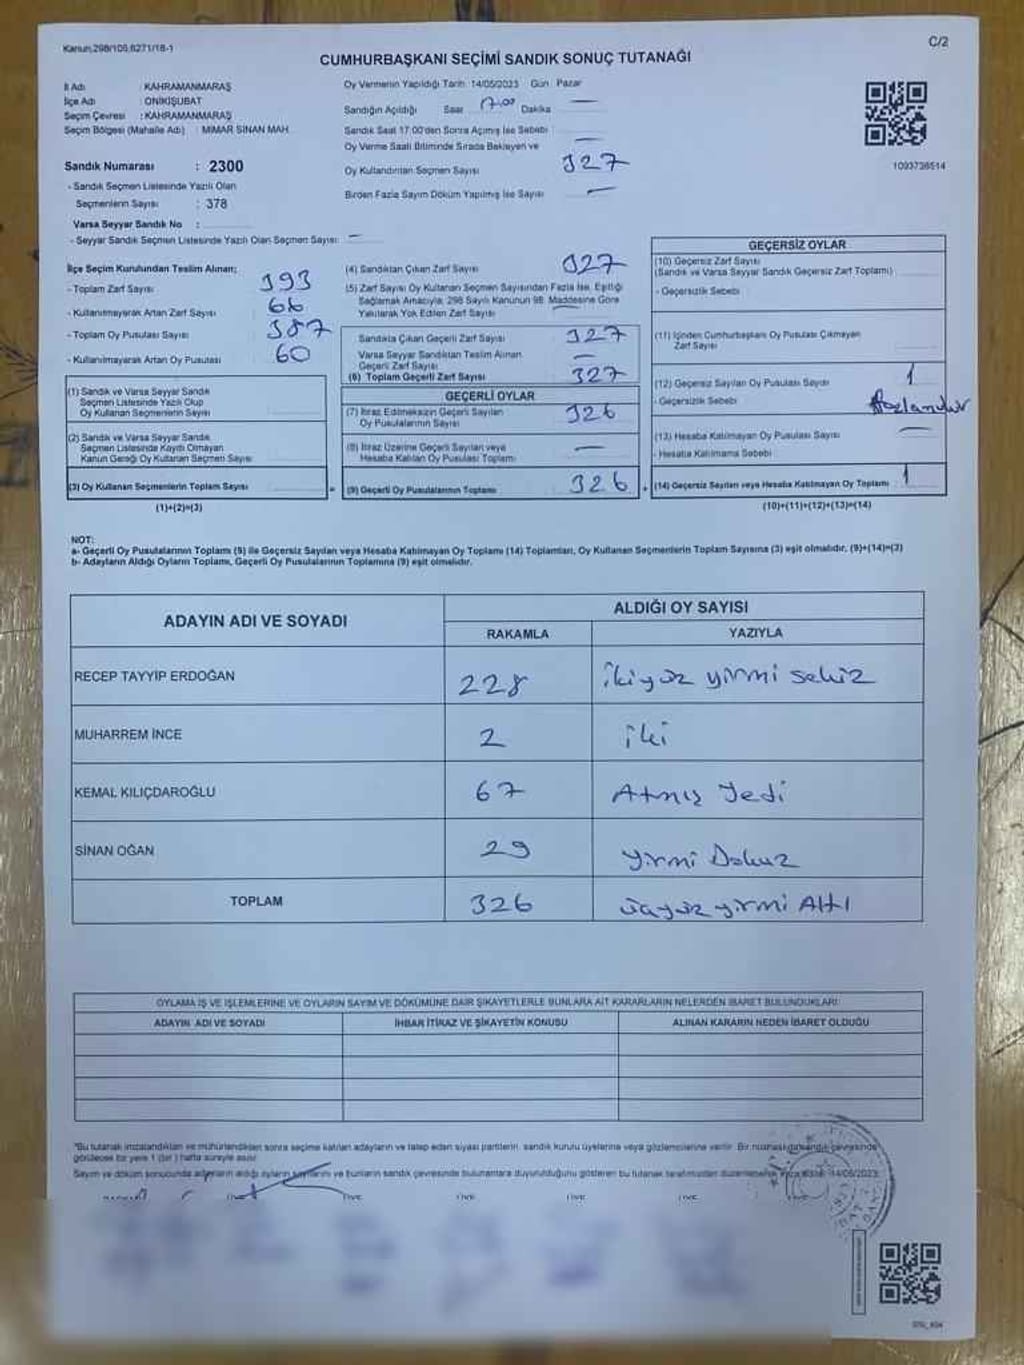 Kanun,298/105,6271/18-1
C/2
CUMHURBAŞKANI SEÇİMİ SANDIK SONUÇ TUTANAĞI
İl Adı : KAHRAMANMARAŞ
İlçe Adı : ONİKİŞUBAT
Seçim Çevresi : KAHRAMANMARAŞ
Seçim Bölgesi (Mahalle Adı) : MİMAR SİNAN MAH.
Sandık Numarası : 2300
- Sandık Seçmen Listesinde Yazılı Olan
Seçmenlerin Sayısı : 378
Varsa Seyyar Sandık No :
- Seyyar Sandık Seçmen Listesinde Yazılı Olan Seçmen Sayısı: —
Oy Vermenin Yapıldığı Tarih 14/05/2023 Gün Pazar
Sandığın Açıldığı Saat 17.00 Dakika —
Sandık Saat 17:00'den Sonra Açılmış İse Sebebi : —
Oy Verme Saati Bitiminde Sırada Bekleyen ve
Oy Kullandırılan Seçmen Sayısı 327
Birden Fazla Sayım Döküm Yapılmış İse Sayısı —
1093736514
İlçe Seçim Kurulundan Teslim Alınan;
- Toplam Zarf Sayısı 393
- Kullanılmayarak Artan Zarf Sayısı 66
- Toplam Oy Pusulası Sayısı 387
- Kullanılmayarak Artan Oy Pusulası 60
(1) Sandık ve Varsa Seyyar Sandık
Seçmen Listesinde Yazılı Olup
Oy Kullanan Seçmenlerin Sayısı
(2) Sandık ve Varsa Seyyar Sandık
Seçmen Listesinde Kaydı Olmayan
Kanun Gereği Oy Kullanan Seçmen Sayısı
(3) Oy Kullanan Seçmenlerin Toplam Sayısı
(1)+(2)=(3)
(4) Sandıktan Çıkan Zarf Sayısı 327
(5) Zarf Sayısı Oy Kullanan Seçmen Sayısından Fazla İse, Eşitliği
Sağlamak Amacıyla, 298 Sayılı Kanunun 98. Maddesine Göre
Yakılarak Yok Edilen Zarf Sayısı —
Sandıkta Çıkan Geçerli Zarf Sayısı 327
Varsa Seyyar Sandıktan Teslim Alınan
Geçerli Zarf Sayısı —
(6) Toplam Geçerli Zarf Sayısı 327
GEÇERLİ OYLAR
(7) İtiraz Edilmeksizin Geçerli Sayılan
Oy Pusulalarının Sayısı 326
(8) İtiraz Üzerine Geçerli Sayılan veya
Hesaba Katılan Oy Pusulası Toplamı —
(9) Geçerli Oy Pusulalarının Toplamı 326
GEÇERSİZ OYLAR
(10) Geçersiz Zarf Sayısı
(Sandık ve Varsa Seyyar Sandık Geçersiz Zarf Toplamı)
- Geçersizlik Sebebi :
(11) İçinden Cumhurbaşkanı Oy Pusulası Çıkmayan
Zarf Sayısı
(12) Geçersiz Sayılan Oy Pusulası Sayısı 1
- Geçersizlik Sebebi
(13) Hesaba Katılmayan Oy Pusulası Sayısı —
- Hesaba Katılmama Sebebi
(14) Geçersiz Sayılan veya Hesaba Katılmayan Oy Toplamı 1
(10)+(11)+(12)+(13)=(14)
NOT:
a- Geçerli Oy Pusulalarının Toplamı (9) ile Geçersiz Sayılan veya Hesaba Katılmayan Oy Toplamı (14) Toplamları, Oy Kullanan Seçmenlerin Toplam Sayısına (3) eşit olmalıdır. (9)+(14)=(3)
b- Adayların Aldığı Oyların Toplamı, Geçerli Oy Pusulalarının Toplamına (9) eşit olmalıdır.
ADAYIN ADI VE SOYADI ALDIĞI OY SAYISI
RAKAMLA YAZIYLA
RECEP TAYYİP ERDOĞAN 228 ikiyüz yirmi sekiz
MUHARREM İNCE 2 iki
KEMAL KILIÇDAROĞLU 67 Atmış Yedi
SİNAN OĞAN 29 Yirmi Dokuz
TOPLAM 326 üçyüz yirmi Altı
OYLAMA İŞ VE İŞLEMLERİNE VE OYLARIN SAYIM VE DÖKÜMÜNE DAİR ŞİKAYETLERLE BUNLARA AİT KARARLARIN NELERDEN İBARET BULUNDUKLARI
ADAYIN ADI VE SOYADI İHBAR İTİRAZ VE ŞİKAYETİN KONUSU ALINAN KARARIN NEDEN İBARET OLDUĞU
*Bu tutanak imzalandıktan ve mühürlendikten sonra seçime katılan adayların ve talep eden siyasi partilerin, sandık kurulu üyelerine veya gözlemcilerine verilir. Bir nüshası da sandık çevresinde
görülecek bir yere 1 (bir) hafta süreyle asılır.
Sayım ve döküm sonucunda adayların aldığı oyların sayılarını ve bunların sandık çevresinde bulunanlara duyurulduğunu gösteren bu tutanak tarafımızdan düzenlenerek 14/05/2023
ÜYE ÜYE ÜYE ÜYE ÜYE